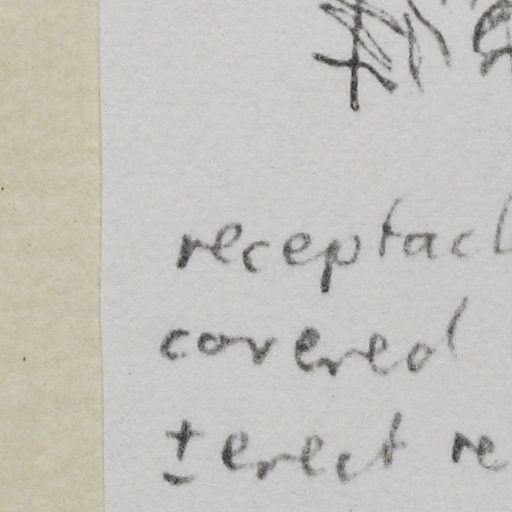 receptacl
covered
± erect re